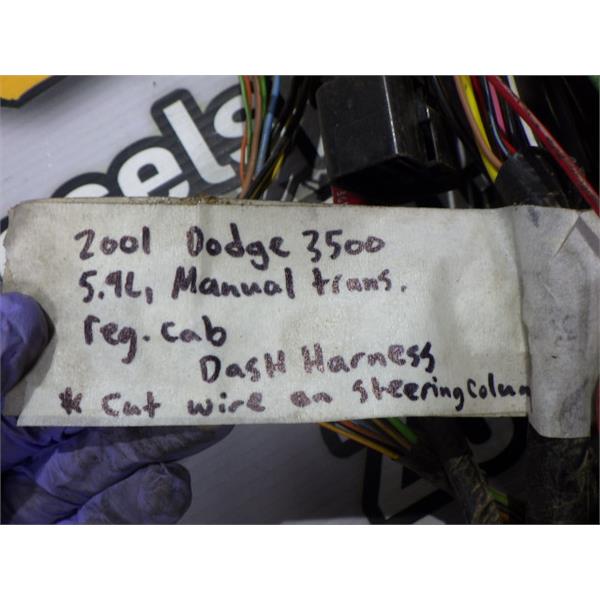 sels
2001 Dodge 3500
5.9L, Manual trans.
reg. cab
Dash Harness
* Cut wire on steering Colum